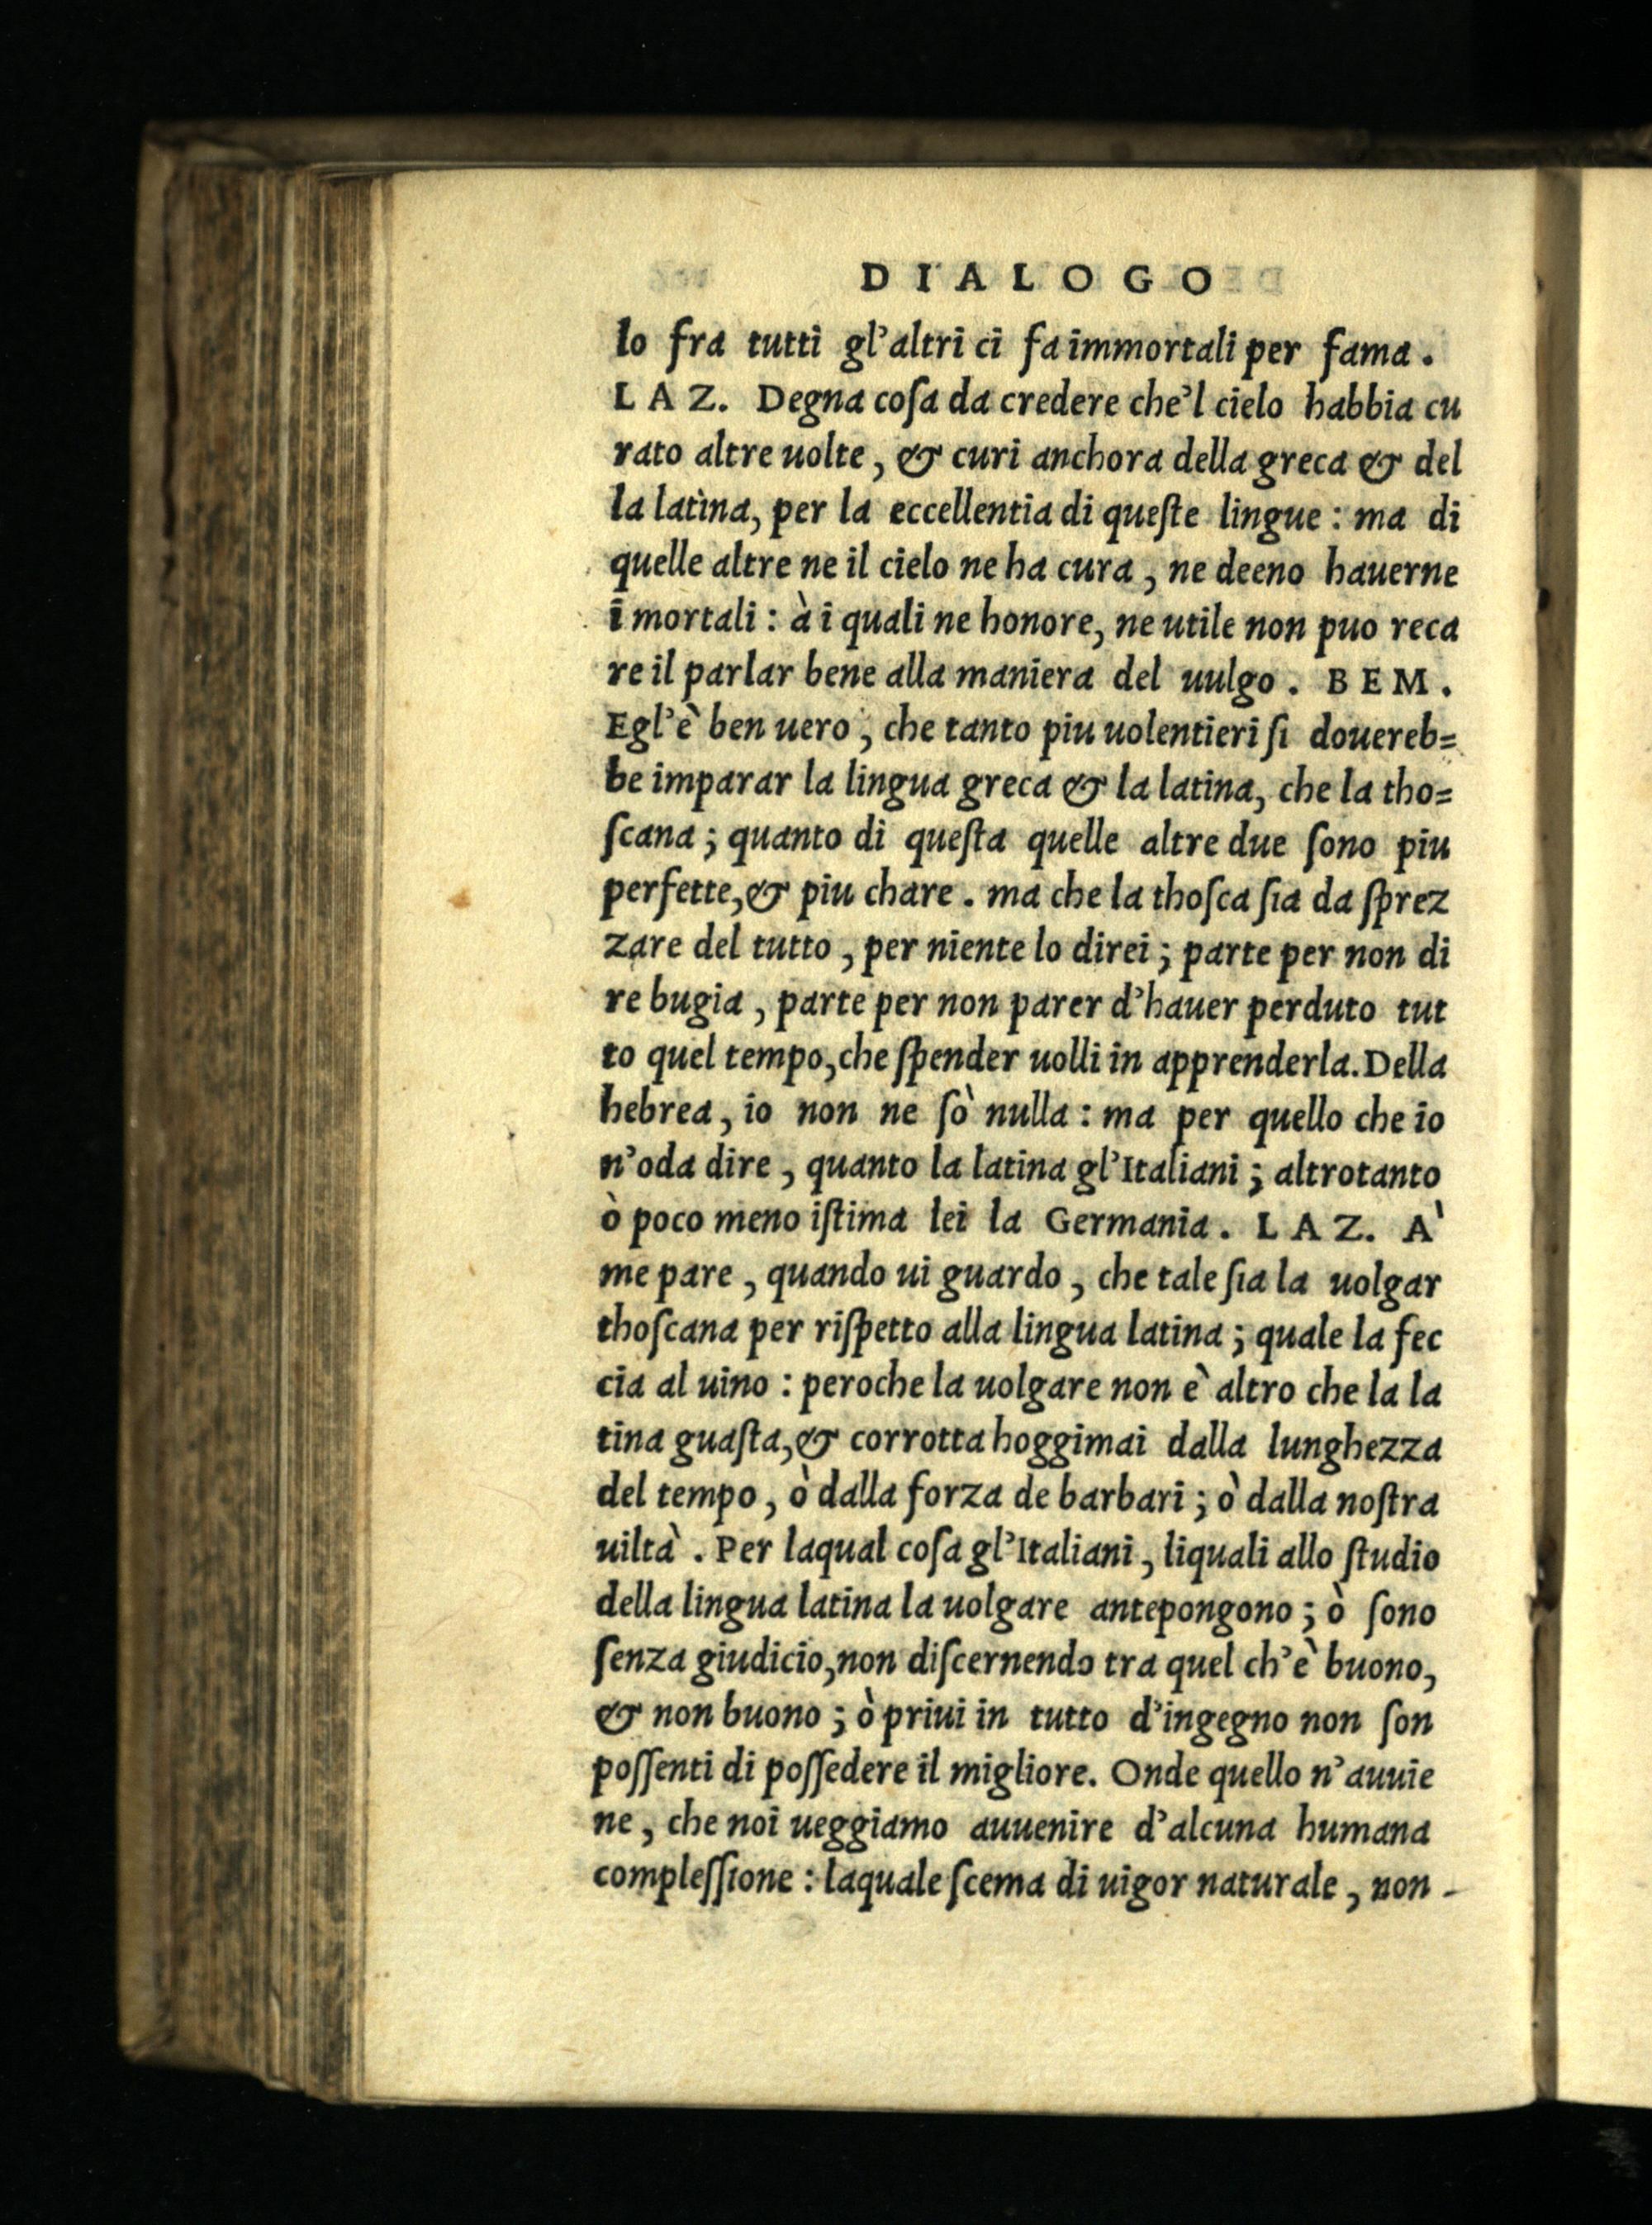 DIALOGO
lo fra tutti gl'altri ci fa immortali per fama.
LAZ. Degna coſa da credere che'l cielo habbia cu
rato altre uolte, & curi anchora della greca & del
la latina, per la eccellentia di queſte lingue: ma di
quelle altre ne il cielo ne ha cura, ne deeno hauerne
i mortali: à i quali ne honore, ne utile non puo reca
re il parlar bene alla maniera del uulgo. BEM.
Egl'è ben uero, che tanto piu uolentieri ſi douereb=
be imparar la lingua greca & la latina, che la tho=
ſcana; quanto di queſta quelle altre due ſono piu
perfette, & piu chare. ma che la thoſca ſia da ſprez
zare del tutto, per niente lo direi; parte per non di
re bugia, parte per non parer d'hauer perduto tut
to quel tempo, che ſpender uolli in apprenderla. Della
hebrea, io non ne ſò nulla: ma per quello che io
n'oda dire, quanto la latina gl'Italiani; altrotanto
ò poco meno iſtima lei la Germania. LAZ. A`
me pare, quando ui guardo, che tale ſia la uolgar
thoſcana per riſpetto alla lingua latina; quale la fec
cia al uino: peroche la uolgare non è altro che la la
tina guaſta, & corrotta hoggimai dalla lunghezza
del tempo, ò dalla forza de barbari; ò dalla noſtra
uiltà. Per laqual coſa gl'Italiani, liquali allo ſtudio
della lingua latina la uolgare antepongono; ò ſono
ſenza giudicio, non diſcernendo tra quel ch'è buono,
& non buono; ò priui in tutto d'ingegno non ſon
poſſenti di poſſedere il migliore. Onde quello n'auuie
ne, che noi ueggiamo auuenire d'alcuna humana
compleſſione: laquale ſcema di uigor naturale, non